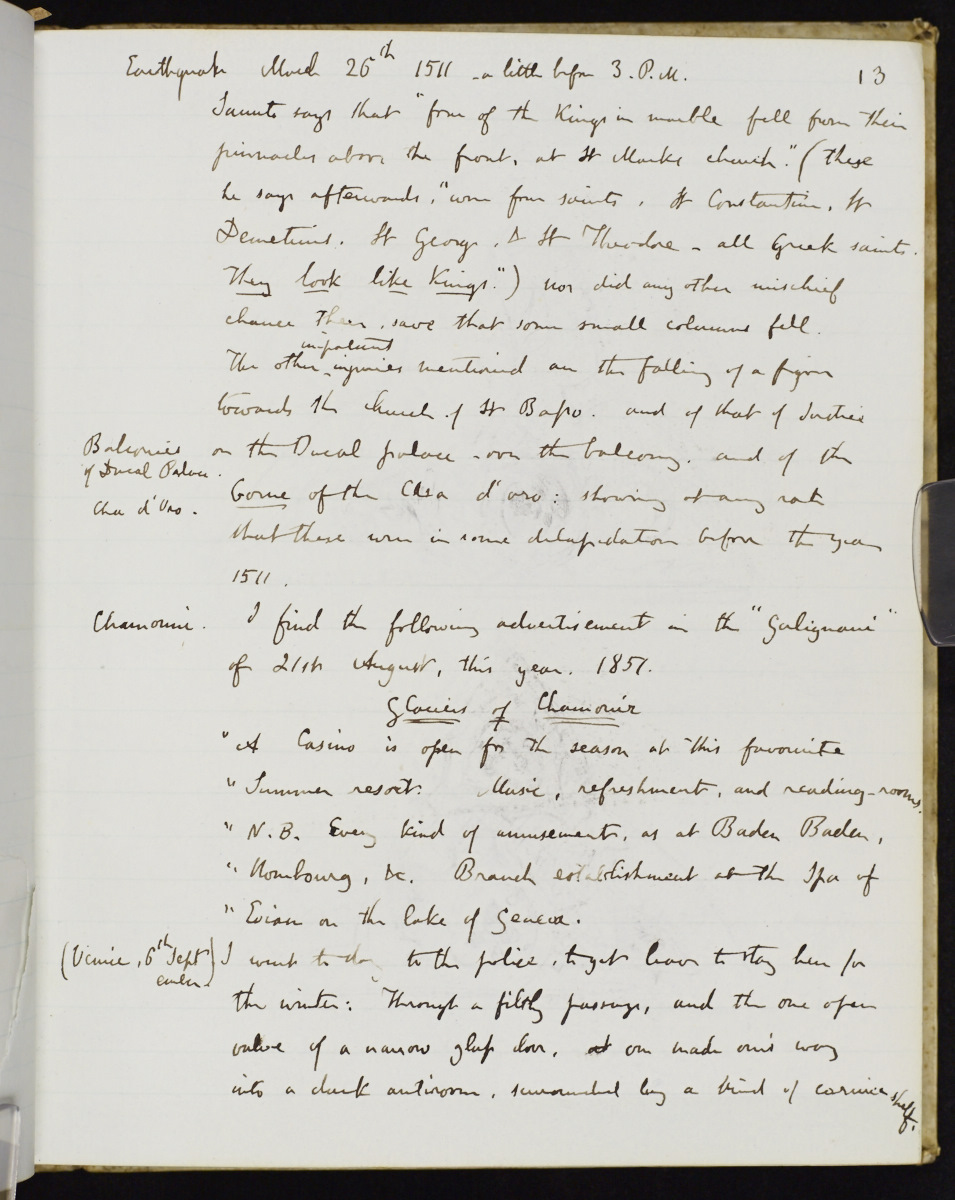 13
Earthquake March 26th 1511 - a little before 3. P.M.
Sanuto says that "four of the Kings in marble fell from their
pinnacles above the front, at St Marks church." (these
he says afterwards, "were four saints, St Constantine, St
Demetrius. St George, & St Theodore - all Greek saints.
They look like Kings.") nor did any other mischief
chance there, save that some small columns fell.
The other important injuries mentioned are the falling of a figure
towards the church of St Basso. and of that of Justice
Balconies of Ducal Palace.
on the Ducal palace - over the balcony. and of the
Cha d'Oro.
Corne of the Chea d'oro: showing at any rate
that these were in some dilapidation before the year
1511.
Chamouni.
I find the following advertisement in the "Galignani"
of 21st August, this year. 1851.
Glaciers of Chamonix
"A Casino is open for the season at this favourite
"Summer resort. Music, refreshment, and reading-rooms.
"N.B. Every kind of amusement, as at Baden Baden,
"Hombourg, &c. Branch establishment at the Spa of
"Evian on the lake of Geneva.
(Venice, 6th Sept)
I went to day to the police, to get leave to stay here for
the winter: Through a filthy passage, and the one open
valve of a narrow glass door, one made one's way
into a dark antiroom, surrounded by a kind of cornice shelf.